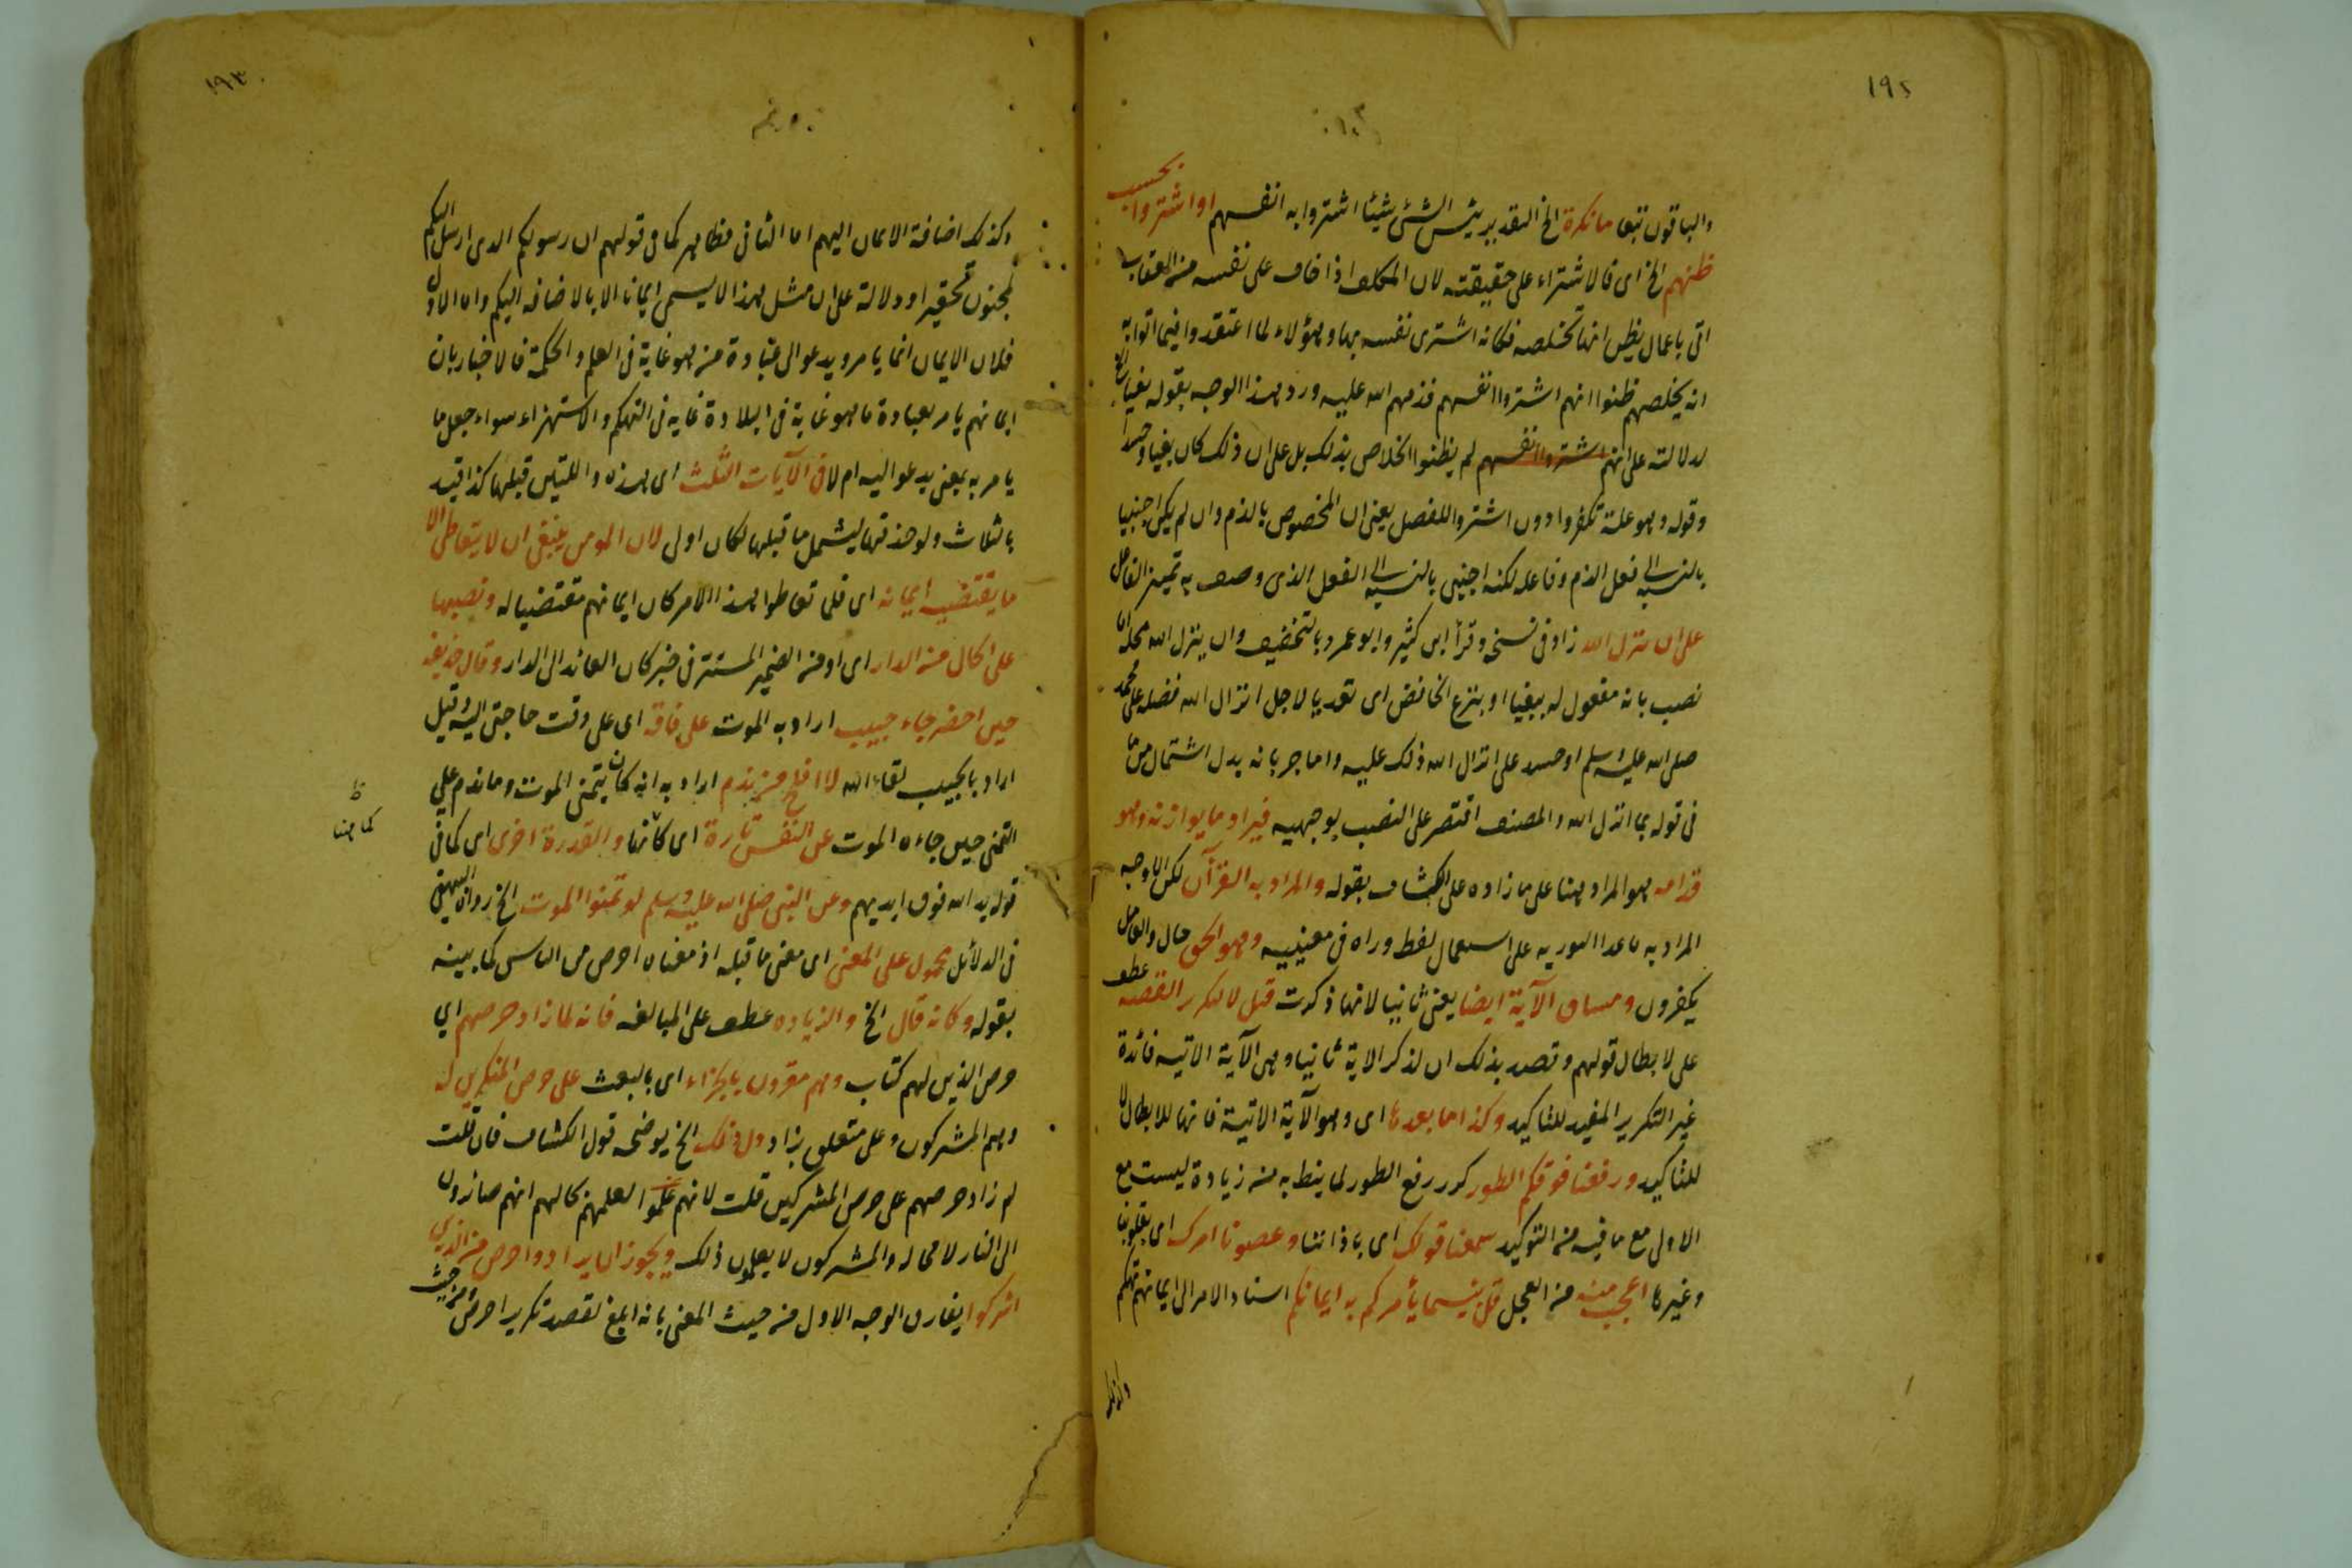 ١٩٢
والباقون تبعا ما نكرة الخ التقدير بئس الشئ شيئا اشتروا به انفسهم او اشتروا بحسب
ظنهم الخ اى فالاشتراء على حقيقته لان المكلف اذا خاف على نفسه من العقاب
اتى باعمال يظن انها تخلصه فكانه اشترى نفسه بها وهؤلاء لما اعتقدوا فيما اتوا به
انه يخلصهم ظنوا انهم اشتروا انفسهم فذمهم الله عليه ورد هذا الوجه بقوله بغيا
لدلالته على انهم اشتروا انفسهم لم يظنوا الخلاص بذلك بل على ان ذلك كان بغيا وحسدا
وقوله وهو علة تكفروا دون اشتروا للفصل يعنى ان المخصوص بالذم وان لم يكن اجنبيا
بالنسبة الى فعل الذم وفاعله لكنه اجنبى بالنسبة الى الفعل الذى وصف به تميز الفاعل
على ان ينزل الله زاد فى نسخة وقرأ ابن كثير وابو عمرو بالتخفيف وان ينزل الله محله اما
نصب بانه مفعول له ببغيا او بنزع الخافض اى تعديا لاجل انزال الله فضله على محمد
صلى الله عليه وسلم او حسد على انزال الله ذلك عليه واما جر بانه بدل اشتمال من ما
فى قوله بما انزل الله والمصنف اقتصر على النصب بوجهيه فيراد ما يوازنه وهو
قدامه هو المراد هنا على ما زاده على الكشاف بقوله والمراد به القرآن لكن الاوجه
المراد به ما عدا التورية على استعمال لفظ وراء فى معنييه وهو الحق حال والعامل
يكفرون ومساق الآية ايضا يعنى ثانيا لانها ذكرت قبل لا لتكرير القصة عطف
على لابطال قولهم وقصد بذلك ان لذكر الاية ثانيا وهى الآية الاتية فائدة
غير التكرير المفيد للتاكيد وكذا ما بعدها اى وهو الآية الاتية فانها للابطال لا
للتاكيد ورفعنا فوقكم الطور كرر رفع الطور لما ينط به من زيادة ليست مع
الاول مع ما فيه من التوكيد سمعنا قولك اى باذاننا وعصونا امرك اى بقلوبنا
وغيرها اعجب منه من العجل قل بئسما يأمركم به ايمانكم اسناد الامر الى ايمانهم تهكم
وكذلك
١٩٣
وكذلك اضافة الايمان اليهم اما الثانى فظاهر كما فى قولهم ان رسولكم الذى ارسل اليكم
لمجنون تحقيرا ودلالة على ان مثل هذا لا يسمى ايمانا الا بالاضافة اليكم واما الاول
فلان الايمان انما يامر ويدعو الى عبادة من هو غاية فى العلم والحكمة فالاخبار بان
ايمانهم يامر بعبادة ما هو غاية فى البلادة غاية فى التهكم والاستهزاء سواء جعل ما
يامر به بمعنى يدعو اليه ام لا فى الآيات الثلث اى هذه واللتين قبلها كذا قيد
بالثلاث ولو حذفها ليشمل ما قبلها لكان اولى لان المومن ينبغى ان لا يتعاطى الا
ما يقتضيه ايمانه اى فلما تعاطوا هذا الامر كان ايمانهم مقتضيا له ونصبها
على الحال من الدار اى او من الضمير المستتر فى خبر كان العائد الى الدار وقال حذيفه
حين احضر جاء حبيب اراد به الموت على فاقة اى على وقت حاجتى اليه وقيل
اراد بالحبيب لقاء الله لا افلح من ندم اراد به انه كان يتمنى الموت وما ندم على
التمنى حين جاءه الموت عن النفس تارة اى كانها والقدرة اخرى اى كما فى
كما هنا
ظ
قوله يد الله فوق ايديهم وعن النبى صلى الله عليه وسلم لو تمنوا الموت الخ رواه البيهقى
فى الدلائل محمول على المعنى اى معنى ما قبله اذ معناه احرص من الناس كما بينه
بقوله وكانه قال الخ والزياده عطف على المبالغه فانه لما زاد حرصهم اى
حرص الذين لهم كتاب وهم مقرون بالجزاء اى بالبعث على حرص المنكرين له
وهم المشركون وعلى متعلق بزاد دل ذلك الخ يوضحه قول الكشاف فان قلت
لم زاد حرصهم على حرص المشركين قلت لانهم علموا لعلمهم بحالهم انهم صائرون
الى النار لا محالة والمشركون لا يعلمون ذلك ويجوز ان يراد واحرص من الذين
اشركوا يفارق الوجه الاول من حيث المعنى بانه ابلغ لقصد تكرير احرص ومن حيث